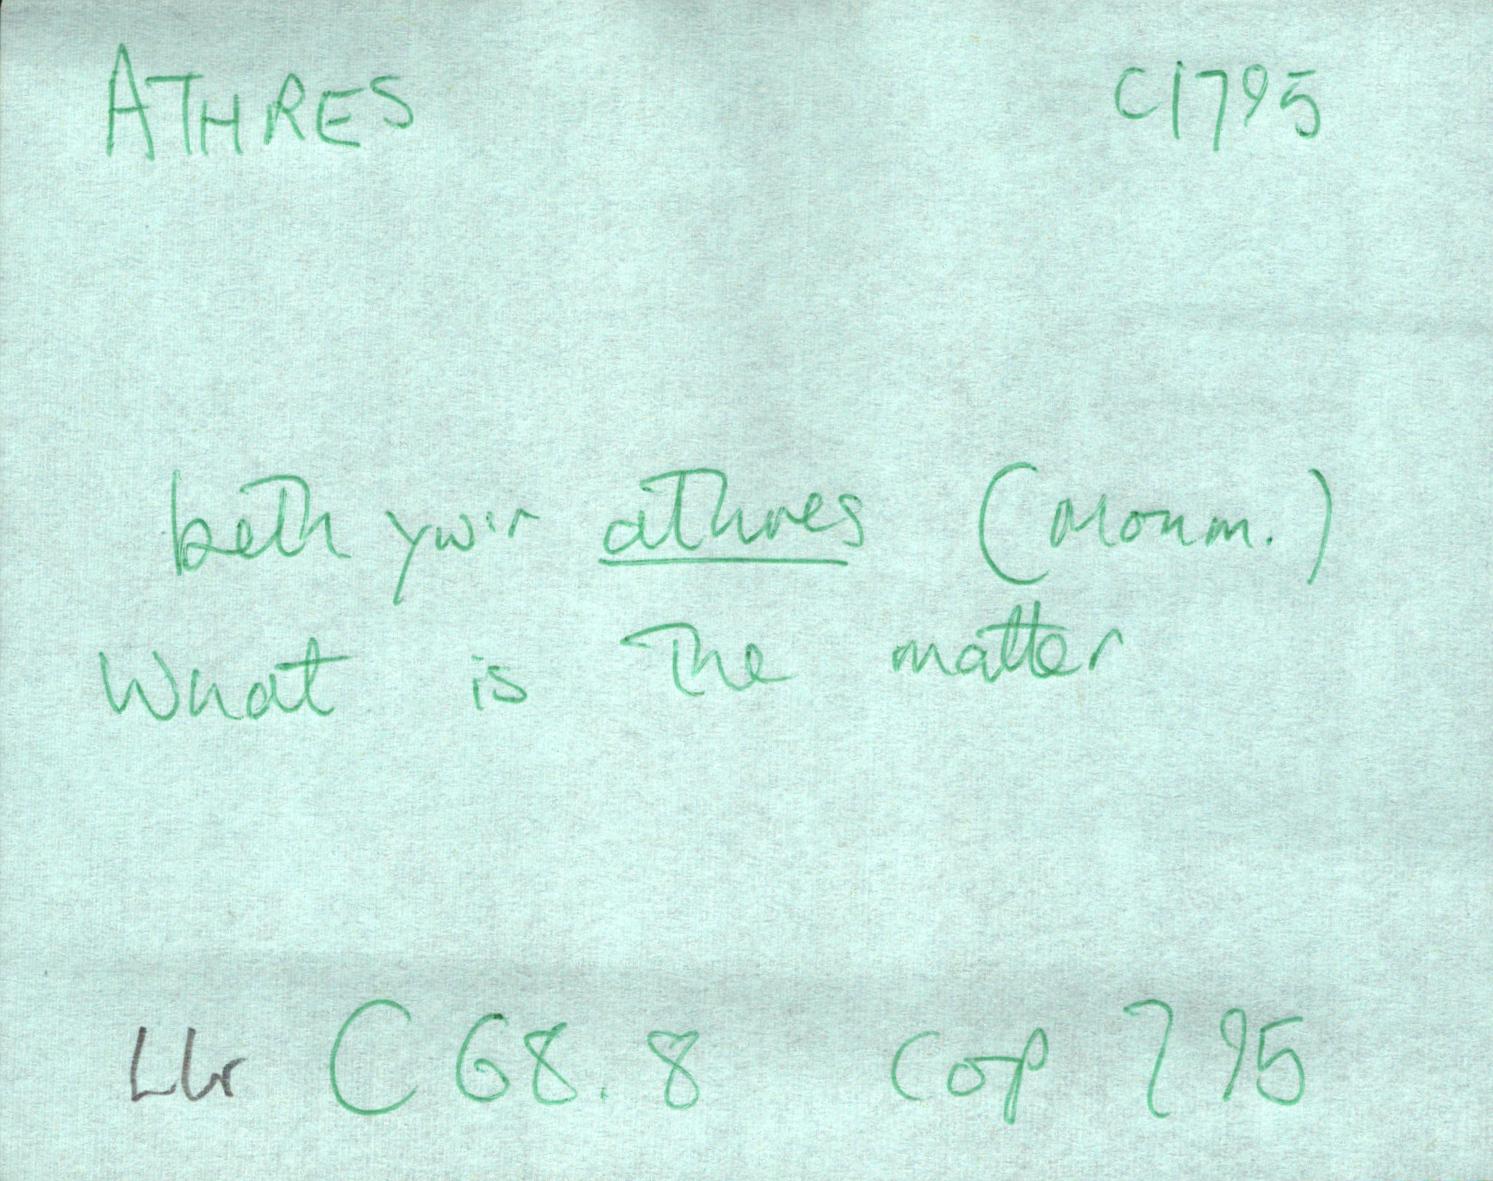 ATHRES C1795
beth yw'r athres (Monm.)
What is the matter
Llr C 68.8 Cop 795